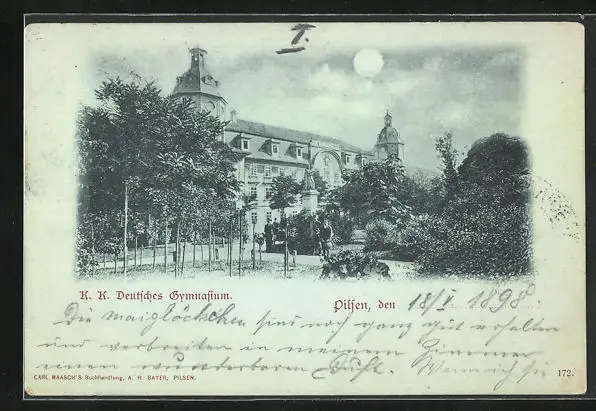 I.
K. K. Deutsches Gymnasium.
Pilsen, den 18/V 1898.
Die maiglöckchen sind noch ganz gut erhalten
und verbreiten in meinem Zimmer
einen wunderbaren Duft. Wenn ich sie
CARL MAASCH'S Buchhandlung, A. H. BAYER, PILSEN.
172.